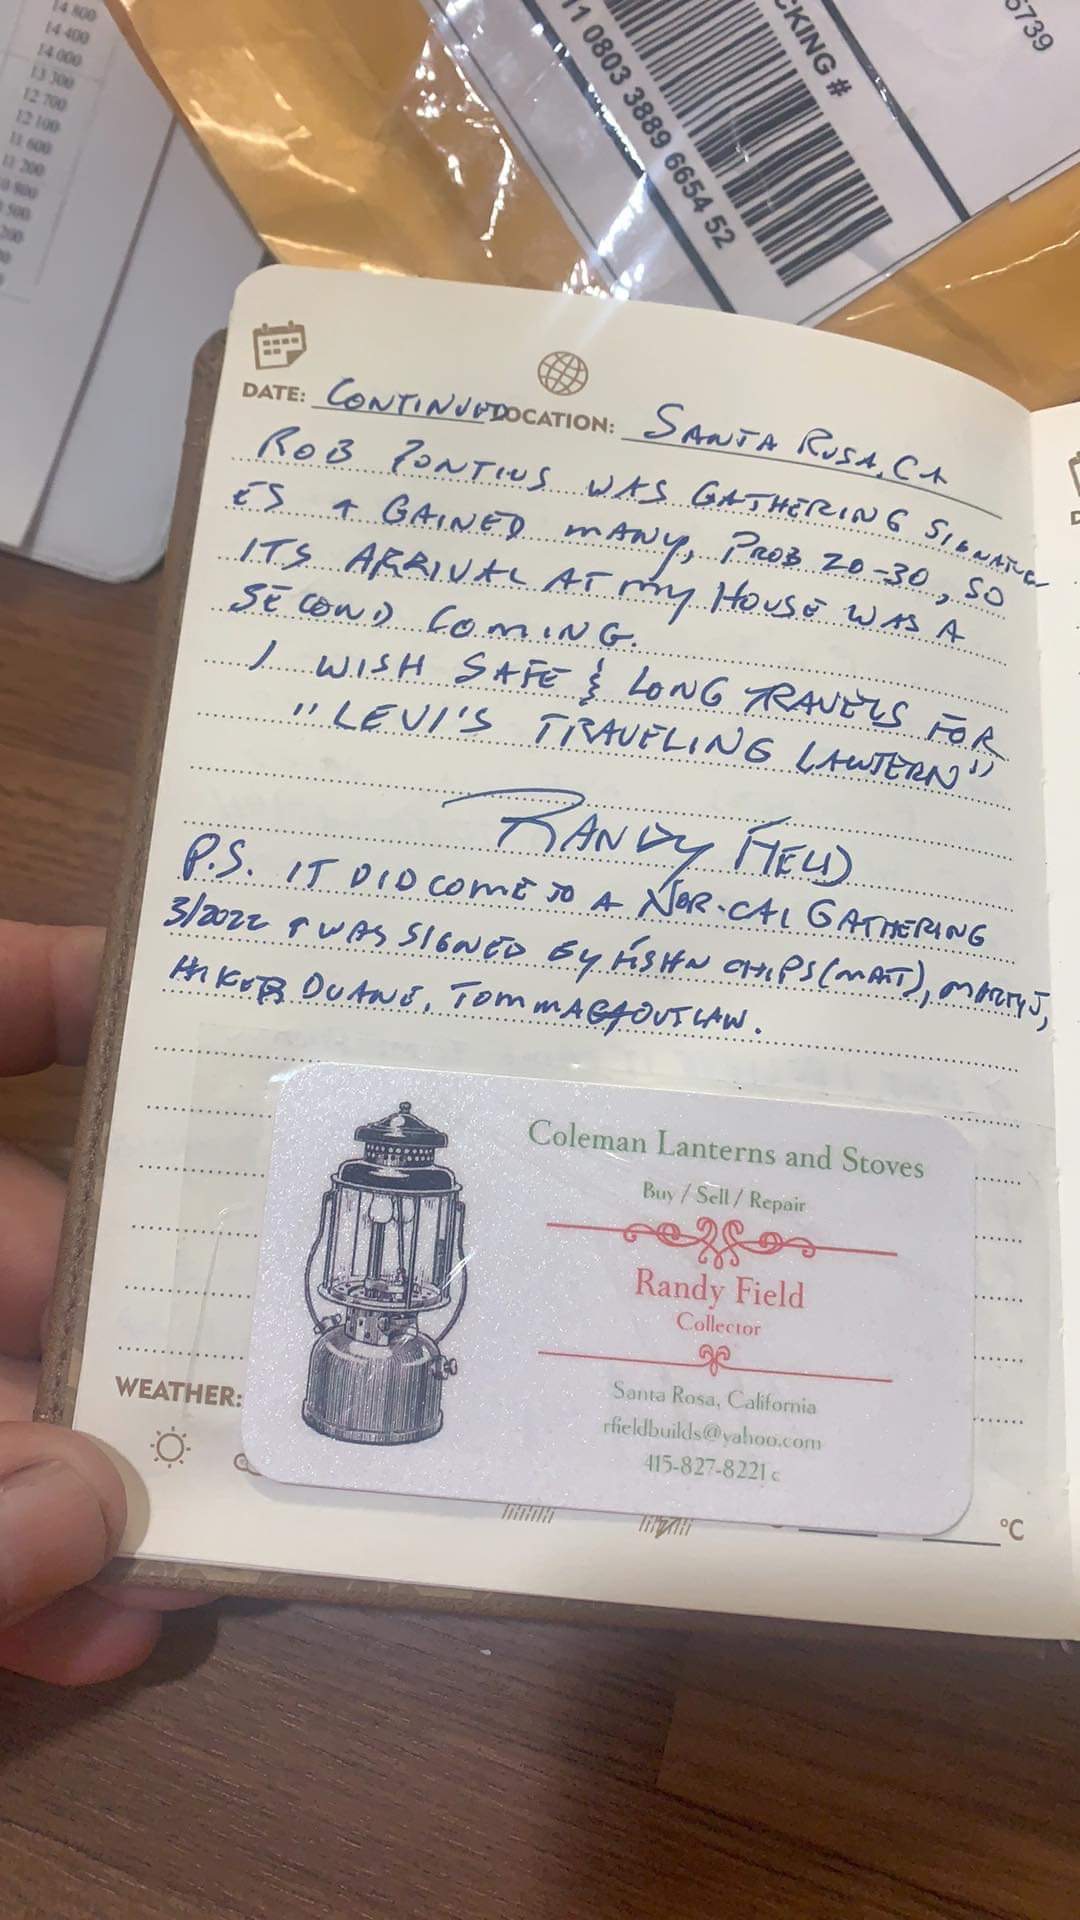 14 800
14 400
14 000
13 300
12 700
12 100
11 600
11 200
CKING #
11 0803 3889 6654 52
6739
DATE: CONTINUED LOCATION: SANTA ROSA, CA
ROB PONTIUS WAS GATHERING SIGNATUR
ES + GAINED MANY, PROB 20-30, SO
ITS ARRIVAL AT MY HOUSE WAS A
SECOND COMING.
I WISH SAFE & LONG TRAVELS FOR
"LEVI'S TRAVELING LANTERN"
RANDY FIELD
P.S. IT DID COME TO A NOR-CAL GATHERING
3/2022 + WAS SIGNED BY FISHN CHIPS (MATT), MARTY J,
HIKER DUANE, TOMMAGAOUTLAW.
Coleman Lanterns and Stoves
Buy / Sell / Repair
Randy Field
Collector
Santa Rosa, California
rfieldbuilds@yahoo.com
415-827-8221 c
WEATHER:
°C